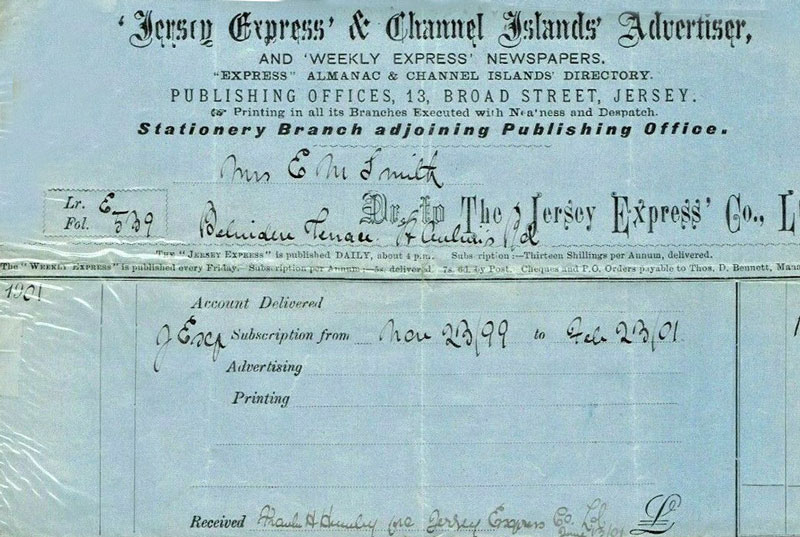 ‘Jersey Express’ & Channel Islands’ Advertiser,
AND ‘WEEKLY EXPRESS’ NEWSPAPERS.
"EXPRESS" ALMANAC & CHANNEL ISLANDS’ DIRECTORY.
PUBLISHING OFFICES, 13, BROAD STREET, JERSEY.
Printing in all its Branches Executed with Nea'ness and Despatch.
Stationery Branch adjoining Publishing Office.
Mrs E M Smith
Lr. E
Fol. 539
Dr. to The ‘Jersey Express’ Co., L
Belvidere Terrace
The "Jersey Express" is published DAILY, about 4 p.m. Subs ription :—Thirteen Shillings per Annum, delivered.
The "Weekly Express" is published every Friday. Subscription per Annum :—5s. delivered. 7s. 6d. by Post. Cheques and P.O. Orders payable to Thos. D. Bennett, Mana
1901
Account Delivered
J Exp Subscription from Nov 23/99 to Feb 23/01
Advertising
Printing
Received pro Jersey Express Co. Ld